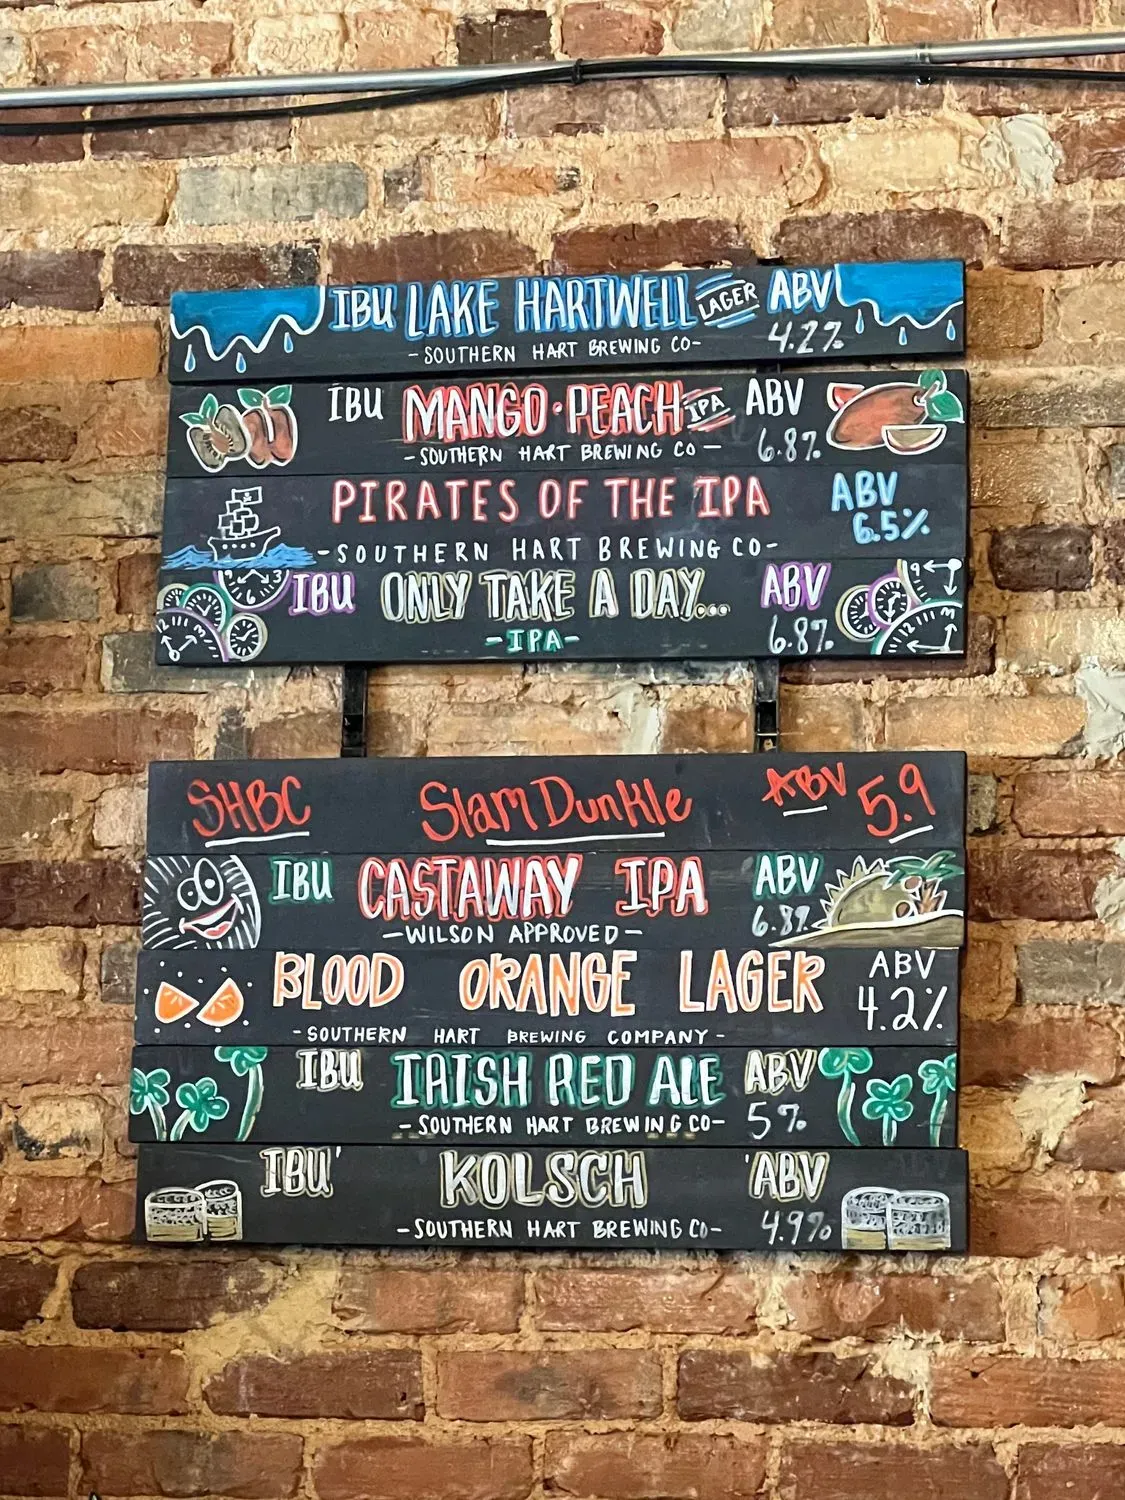 IBU LAKE HARTWELL LAGER ABV
-SOUTHERN HART BREWING CO- 4.2%
IBU MANGO·PEACH IPA ABV
-SOUTHERN HART BREWING CO- 6.8%
PIRATES OF THE IPA ABV
6.5%
-SOUTHERN HART BREWING CO-
IBU ONLY TAKE A DAY... ABV
-IPA- 6.8%
SHBC Slam Dunkle ABV 5.9
IBU CASTAWAY IPA ABV
-WILSON APPROVED- 6.8%
BLOOD ORANGE LAGER ABV
4.2%
-SOUTHERN HART BREWING COMPANY-
IBU IRISH RED ALE ABV
-SOUTHERN HART BREWING CO- 5%
IBU' KOLSCH 'ABV
-SOUTHERN HART BREWING CO- 4.9%